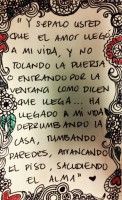 "Y SEPALO USTED
QUE EL AMOR LLEGÓ
A MI VIDA, Y NO
TOCANDO LA PUERTA
O ENTRANDO POR LA
VENTANA COMO DICEN
QUE LLEGA... HA
LLEGADO A MI VIDA
DERRUMBANDO LA
CASA, TUMBANDO
PAREDES, ARRANCANDO
EL PISO, SACUDIENDO
EL ALMA"